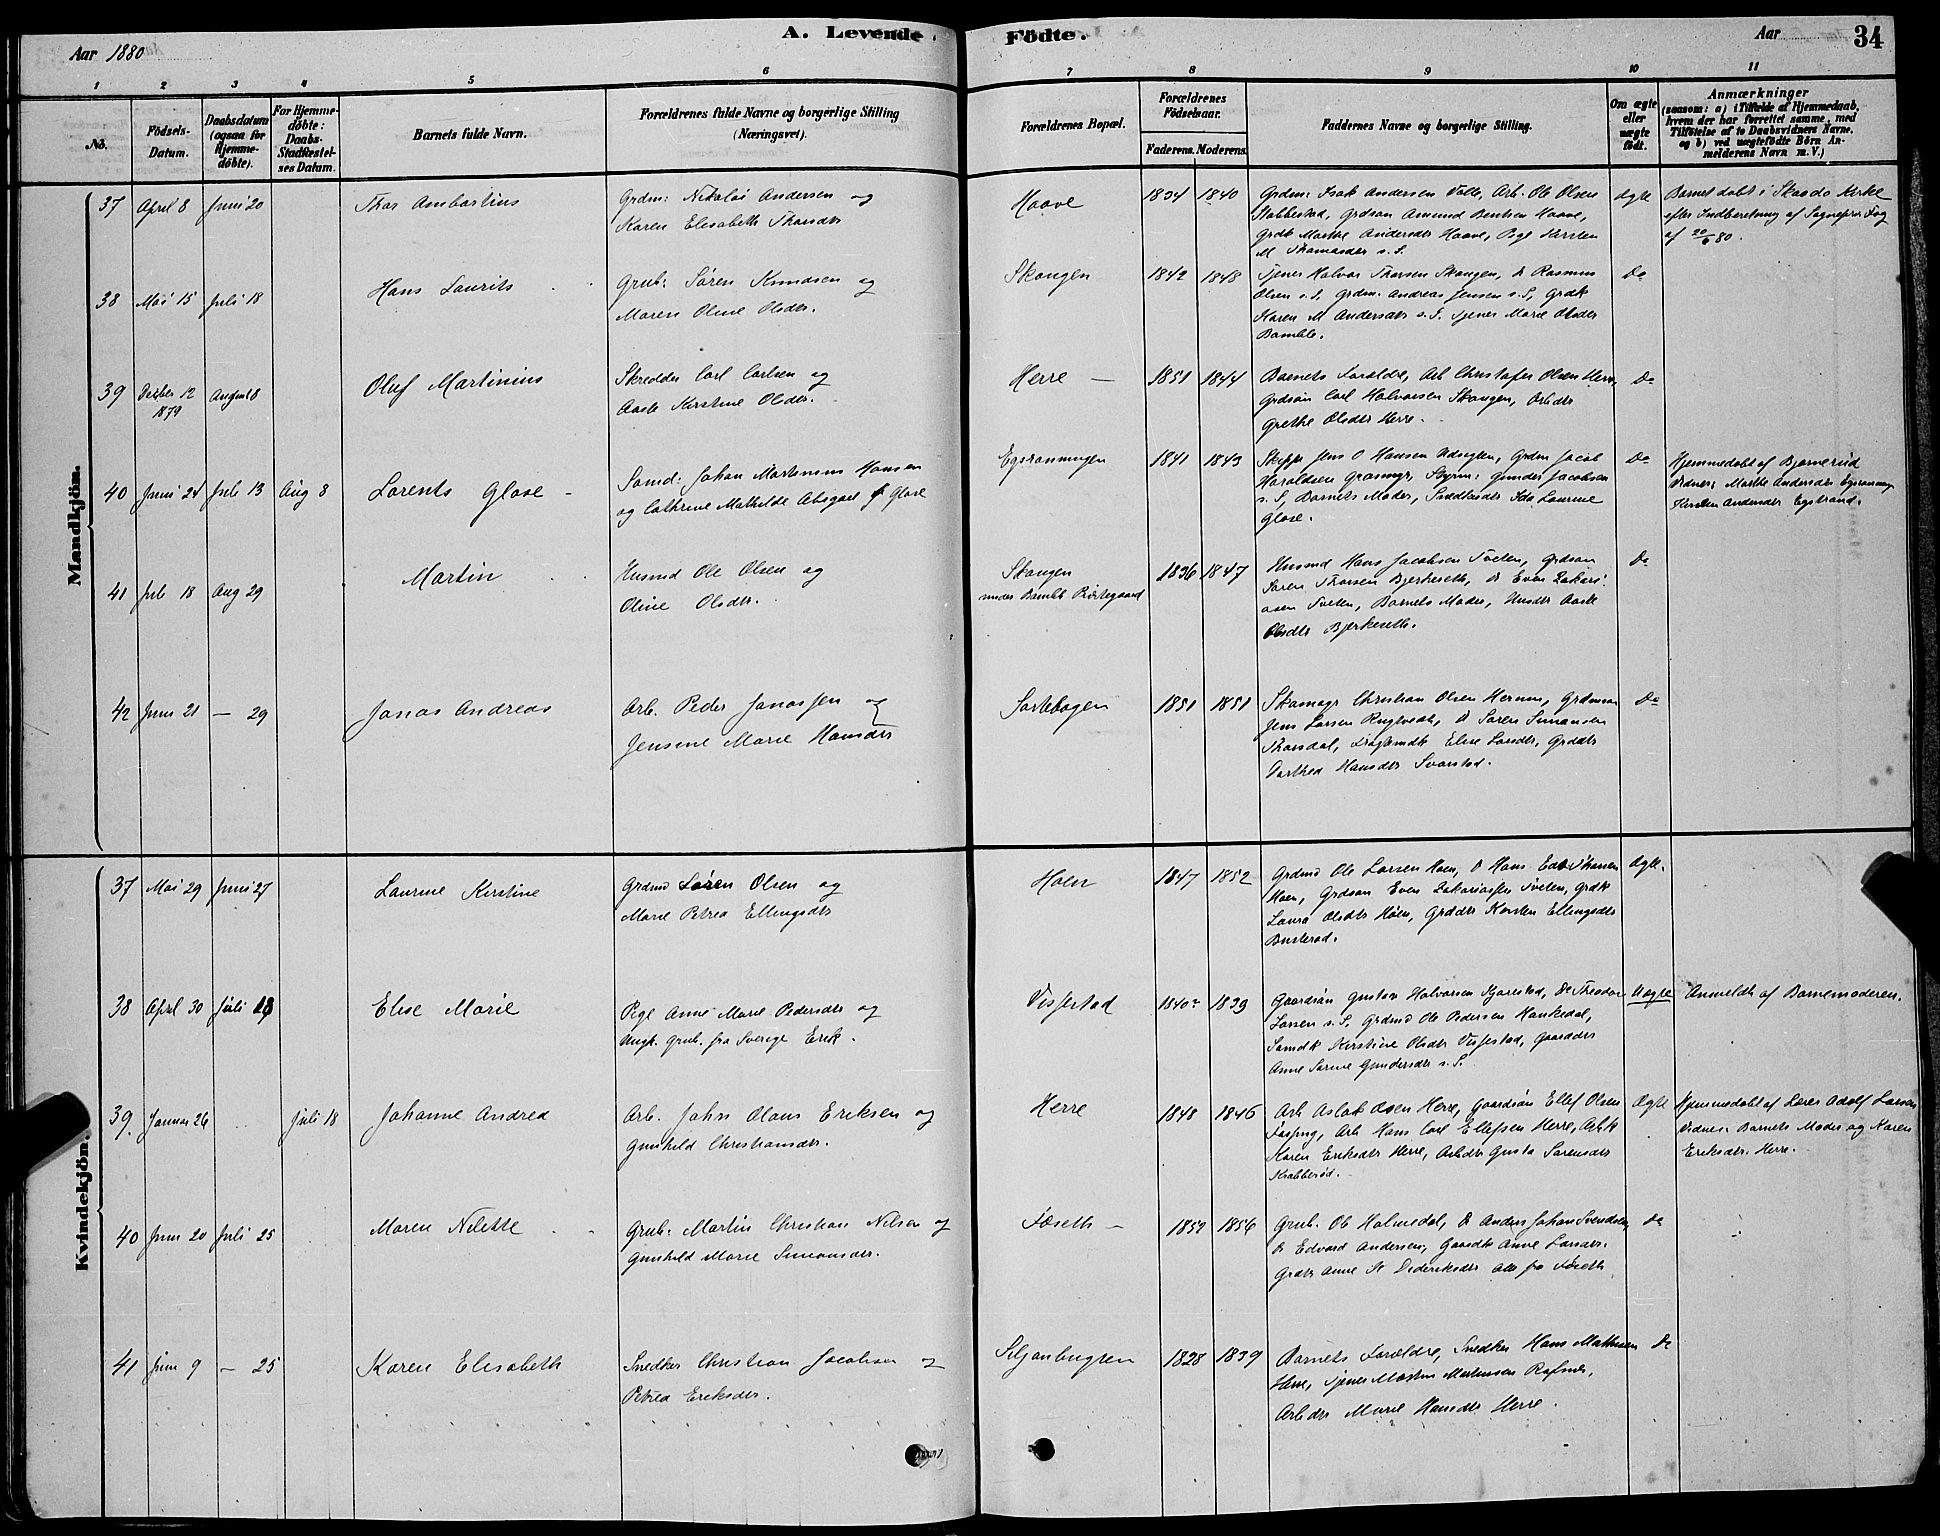 A. Levende Födte.
Aar 1880
Aar
34
1 2 3 4 5 6 7 8 9 10 11
No.
Födsels-Datum.
Daabsdatum (ogsaa for Hjemme-döbte).
For Hjemme-döbte: Daabs-Stadfæstel-ses Datum.
Barnets fulde Navn.
Forældrenes fulde Navne og borgerlige Stilling (Næringsvei).
Forældrenes Bopæl.
Forældrenes Födselsaar.
Faderens. Moderens.
Faddernes Navne og borgerlige Stilling.
Om ægte eller uægte födt.
Anmærkninger
(saasom: a) i Tilfælde af Hjemmedaab, hvem der har forrettet samme, med Tilföielse af to Daabsvidners Navne, og b) ved uægtefödte Börn An-melderens Navn m. V.)
Mandkjön.
37 April 8 Juni 20 Thor Ambortius
Grdm: Nikolai Andersen og
Karen Elisabeth Thorsdtr
Haave 1834 1840
Grdm: Isak Andersen Valle, Arb. Ole Olsen
Stabbestad, Grdsøn Amund Bentsen Haave,
Grdk Marthe Andersdtr Haave, Pige Karsten
M Thomasdtr s. S.
Ægte
Barnet døbt i Skaado Kirke
efter Indberetning af Sognepr. Fog
af 20/6 80.
38 Mai 15 Juli 18 Hans Laurits
Grub: Søren Knudsen og
Maren Oline Olsdtr.
Skougen 1842 1848
Tjener Halvor Thorsen Skougen, D Rasmus
Olsen s. S, Grdm. Andreas Jensen s. S, Grdk
Karen M Andersdtr s. S. Tjener Marie Olsdtr
Bamble.
Do
39 October 12 1879 August 8 Oluf Martinius
Skredder Carl Carlsen og
Aaste Kirstine Olsdtr.
Herre 1851 1844
Barnets Forældre, Arb Christofer Olsen Herre,
Grdsøn Carl Halvorsen Skougen, Arbdtr
Grethe Olsdtr Herre.
Do
40 Juni 24 Juli 13 Aug 8 Lorents Glose
Sømd: Johan Martinius Hansen
og Cathrine Mathilde Abigael f Glose
1841 1843
Skipper Jens O Hansen, Grdm Jacob
Haroldsen, Styrm: Gunder Jacobsen
s. S, Barnets Moder, Ida Laurine
Glose.
Do
Hjemmedøbt af Bjørnerud
Vidner: Marthe Andersdtr
Kirsten Andersdtr Egstrand.
41 Juli 18 Aug 29 Martin
Husmd Ole Olsen og
Oline Olsdtr.
Skougen
under Bamble Præstegaard
1836 1847
Husmd Hans Jacobsen Tveten, Grdsøn
Søren Thorsen Bjerkeseth, D Even Zakari-
asen Tveten, Barnets Moder, Husdtr Aaste
Olsdtr Bjerkeseth.
Do
42 Juni 21 — 29 Jonas Andreas
Arb. Peder Jonassen og
Jensine Marie Hansdtr
Sortebogen 1851 1851
Skomagr Christian Olsen, Grdmsøn
Jens Larsen Rugtvedt, D Søren Simonsen
Thorsdal, Elise Larsdtr, Grddtr
Dorthea Hansdtr Svarstad.
Do
Kvindekjön.
37 Mai 29 Juni 27 Laurine Kirstine
Grdmd Søren Olsen og
Marie Petrea Ellingsdtr
Hoen 1847 1852
Grdmd Ole Larsen Hoen, D Hans Edv Thorsen
Hoen, Grdsøn Even Zakariassen Tveten, Grdk
Laura Olsdtr Hoen, Grddtr Karsten Ellingsdtr
Busterød.
Ægte.
38 April 30 Juli 18 Elise Marie
Pige Anne Marie Pedersdtr og
Ungk. Grub. fra Sverige Erik.
Vissestad 1840? 1839
Gaardsøn Gustav Halvorsen Kjørrestad, Do Theodor
Larsen s. S, Grdmd Ole Pedersen Hankedal,
Sømdk Kirstine Olsdtr Vissestad, Gaarddtr
Anne Sørine Gundersdtr s. S.
Uægte
Anmeldt af Barnemoderen.
39. Januar 26 Juli 18 Johanne Andrea
Arb. John Olaus Eriksen og
Gunhild Christiansdtr.
Herre 1848 1846
Arb Aslak Olsen Herre, Gaardsøn Ellef Olsen
, Arb Hans Carl Ellefsen Herre, Arbk
Karen Eriksdtr Herre, Arbdtr Gusta Sørensdtr
Krabberød.
Ægte
Hjemmedøbt af Lærer Adolf Larsen
Vidner: Barnets Moder og Karen
Eriksdtr. Herre.
40 Juni 20 Juli 25 Maren Nilette
Grub. Martin Christian Nilsen og
Gunhild Marie Simonsdtr.
Føseth 1859 1856
Grub. Ole Holmedal, D Anders Johan Svendsen,
D Edvard Andersen, Gaardk Anne Larsdtr.
Grddtr Anne K Dideriksdtr alle fra Føseth
Do
41 Juni 9 — 25 Karen Elisabeth
Snedker Christian Jacobsen og
Petrea Eriksdtr.
Siljanbugten 1828 1839
Barnets Forældre, Snedker Hans Mathisen
Herre, Tjener Martin Mortensen Rafnes,
Arbdtr Marie Hansdtr Herre.
Do